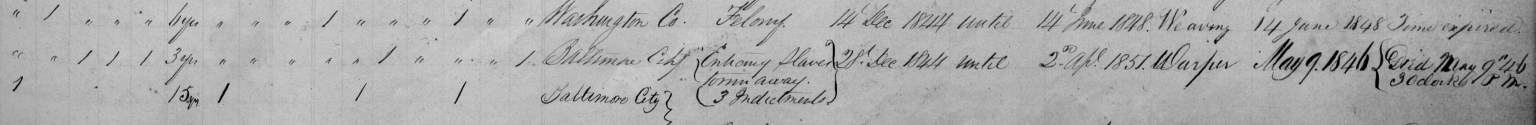 " 1 " " " 6 yrs " " " " 1 " " " 1 " " Washington Co. Felony 14 Dec 1844 until 14 June 1848. Weaving 14 June 1848 Time expired.
" " 1 1 1 3 yrs " " " " " 1 " " " 1 Baltimore City Enticing Slaves 28 Dec 1844 until 2d Apl. 1851. Warper May 9. 1846 Died May 9th 46
to run away. 3 Oclock P M.
1 15 yrs 1 1 1 Baltimore City 3 Indictments